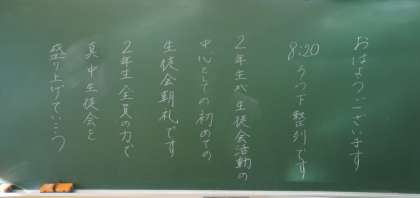 おはようございます
8:20 ろう下整列です
2年生が生徒会活動の
中心としての初めての
生徒会朝礼です
2年生全員の力で
真中生徒会を
盛り上げていこう